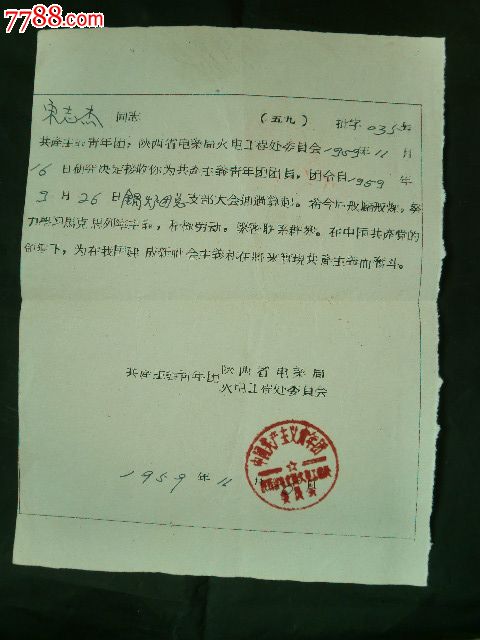 7788.com
宋志杰 同志 (五九) 批字 035号
共产主义青年团，陕西省电业局火电工程处委员会1959年11月
16日研究决定接收你为共产主义青年团团员，团令自1959年
9月26日 支部大会通过算起。希今后 努
力学习馬克思列宁主义，积极劳动。紧密联系群众。在中国共产党的
领导下，为在我国建成 社会主义和在将来实现共产主义而奮斗。
共产主义青年团陕西省电业局
火电工程处委员会
中国共产主义青年团
委员会
1959年11月